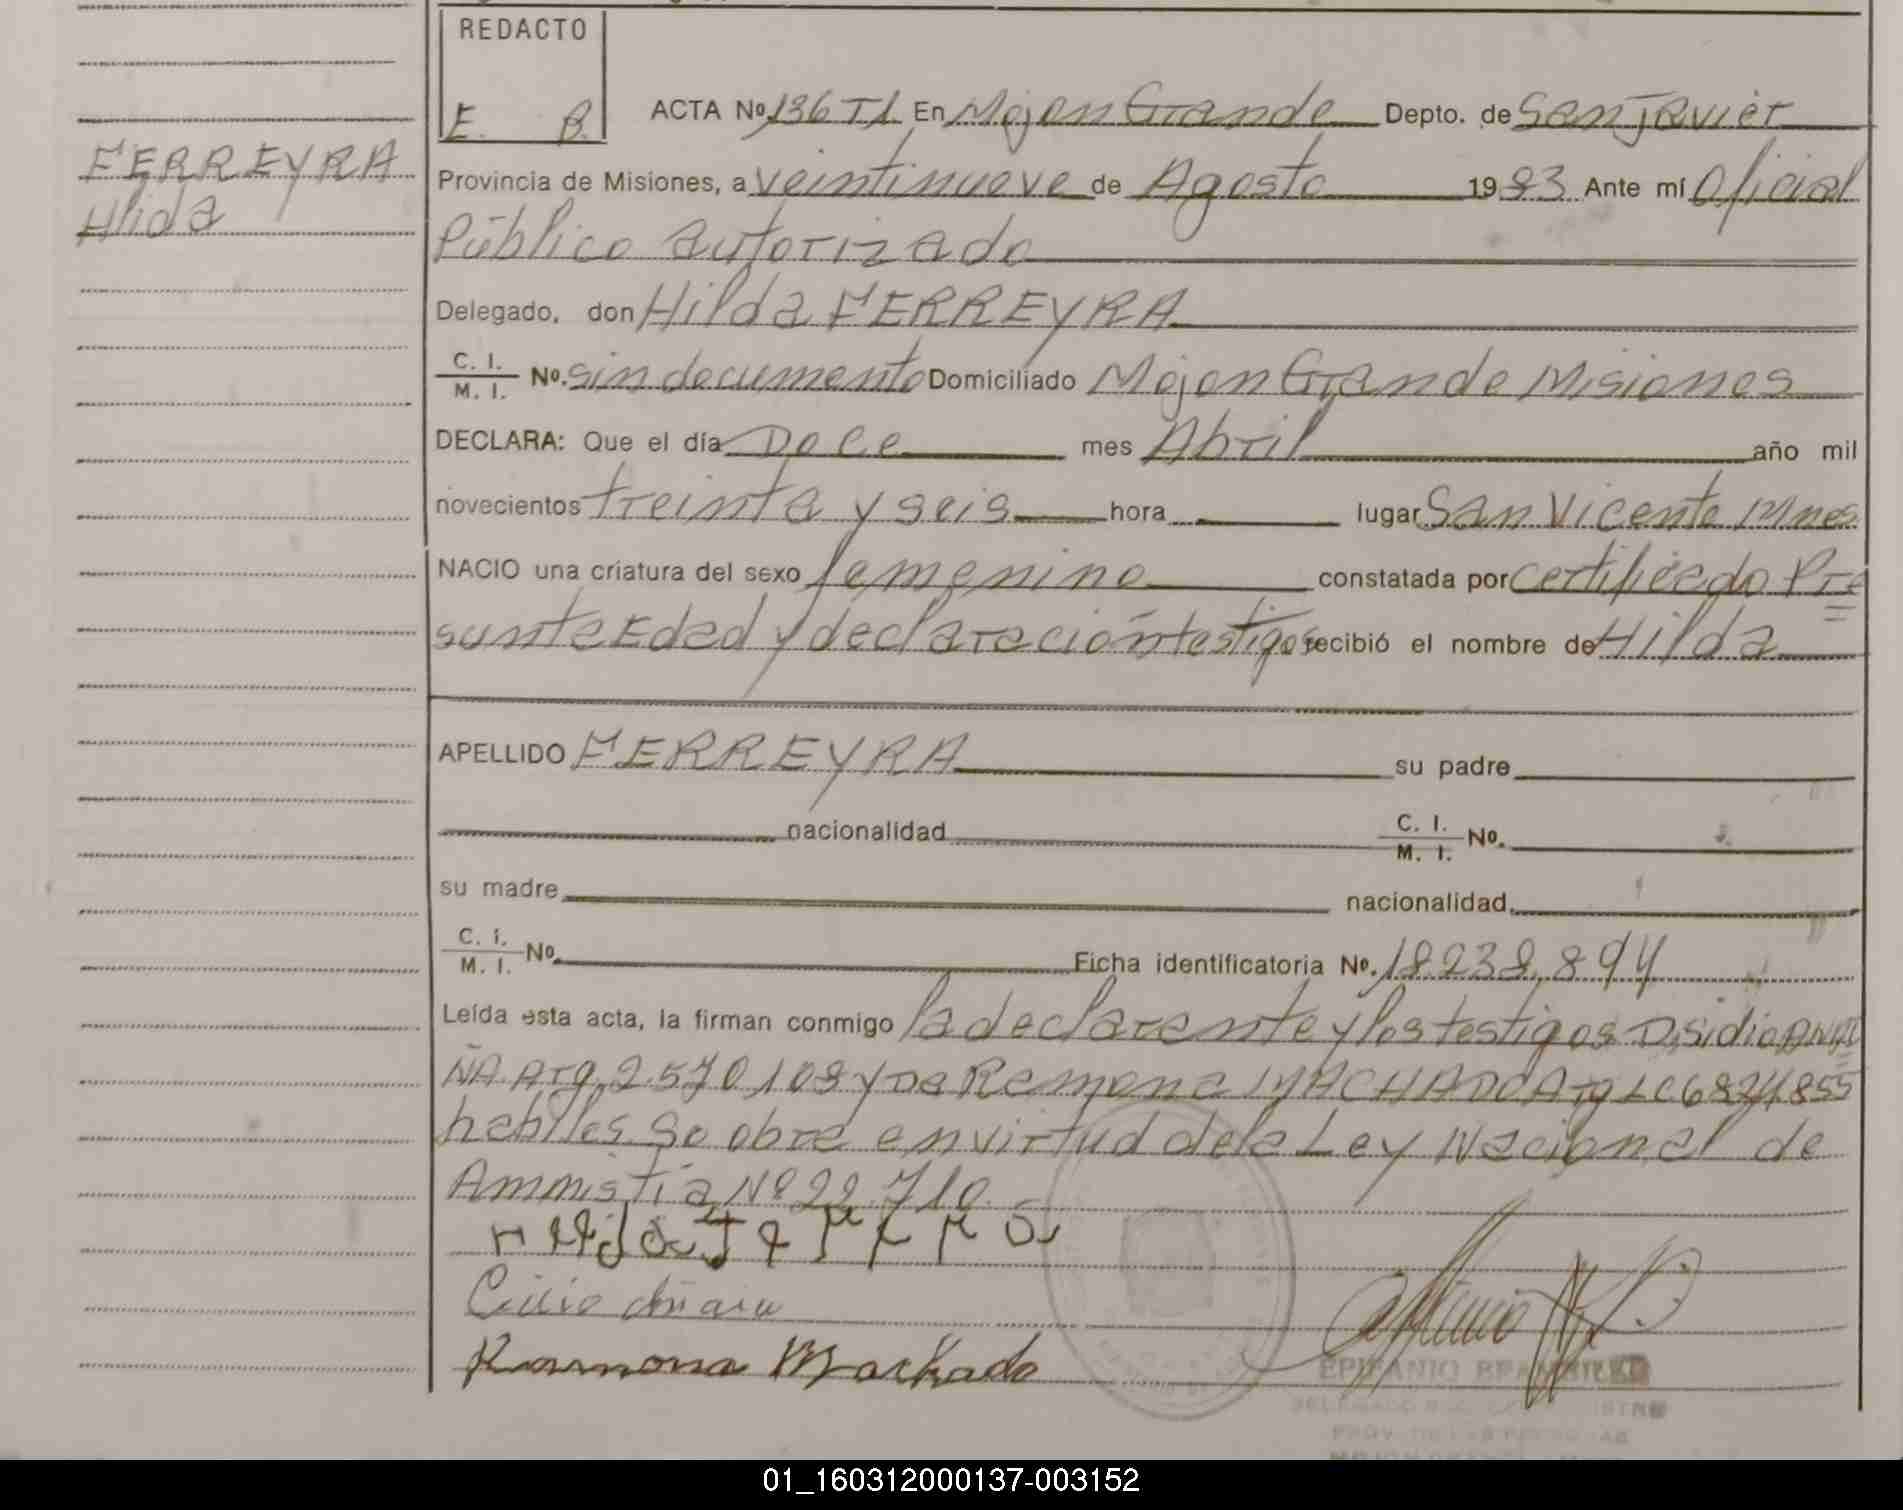 REDACTO
E. B.
FERREYRA
Hlida
ACTA Nº 136 T1. En Mojon Grande Depto. de San Javier
Provincia de Misiones, a veintinueve de Agosto 1983 Ante mí Oficial
Público autorizado
Delegado, don Hilda FERREYRA
C. I. / M. I. Nº. sin documento Domiciliado Mojon Grande Misiones
DECLARA: Que el día Doce mes Abril año mil
novecientos treinta y seis hora lugar San Vicente Mnes
NACIO una criatura del sexo femenino constatada por certificado Pre
sunta Edad y declaración testigos recibió el nombre de Hilda
APELLIDO FERREYRA su padre
nacionalidad C. I. / M. I. Nº.
su madre nacionalidad
C. I. / M. I. Nº. Ficha identificatoria Nº. 18.238.894
Leída esta acta, la firman conmigo la declarante y los testigos D.
ÑA. Arg. 2.570.108 y Da Ramona MACHADO Arg LC 6824855
habiles. Se obra en virtud de la Ley Nacional de
Ammistia Nº 22.710.
Ramona Machado
EPIFANIO
DELEGADO
01_160312000137-003152